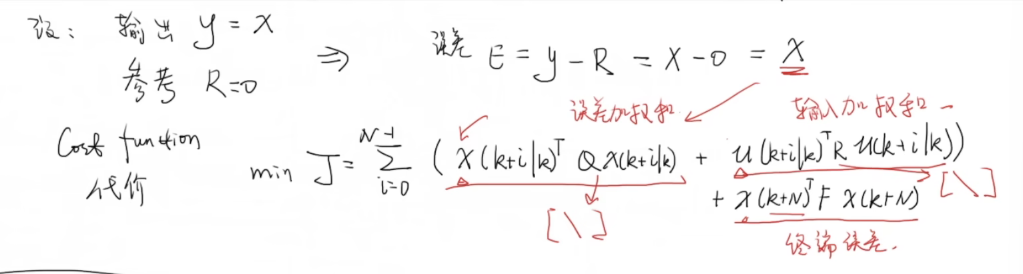 设: 输出 y = x ⇒ 误差 E = y - R = x - 0 = x
参考 R=0
误差加权和 输入加权和
Cost function
代价
min J = N-1 ∑ i=0 ( x(k+i|k)ᵀ Q x(k+i|k) + u(k+i|k)ᵀ R u(k+i|k))
+ x(k+N)ᵀ F x(k+N)
[\] [\]
终端误差.